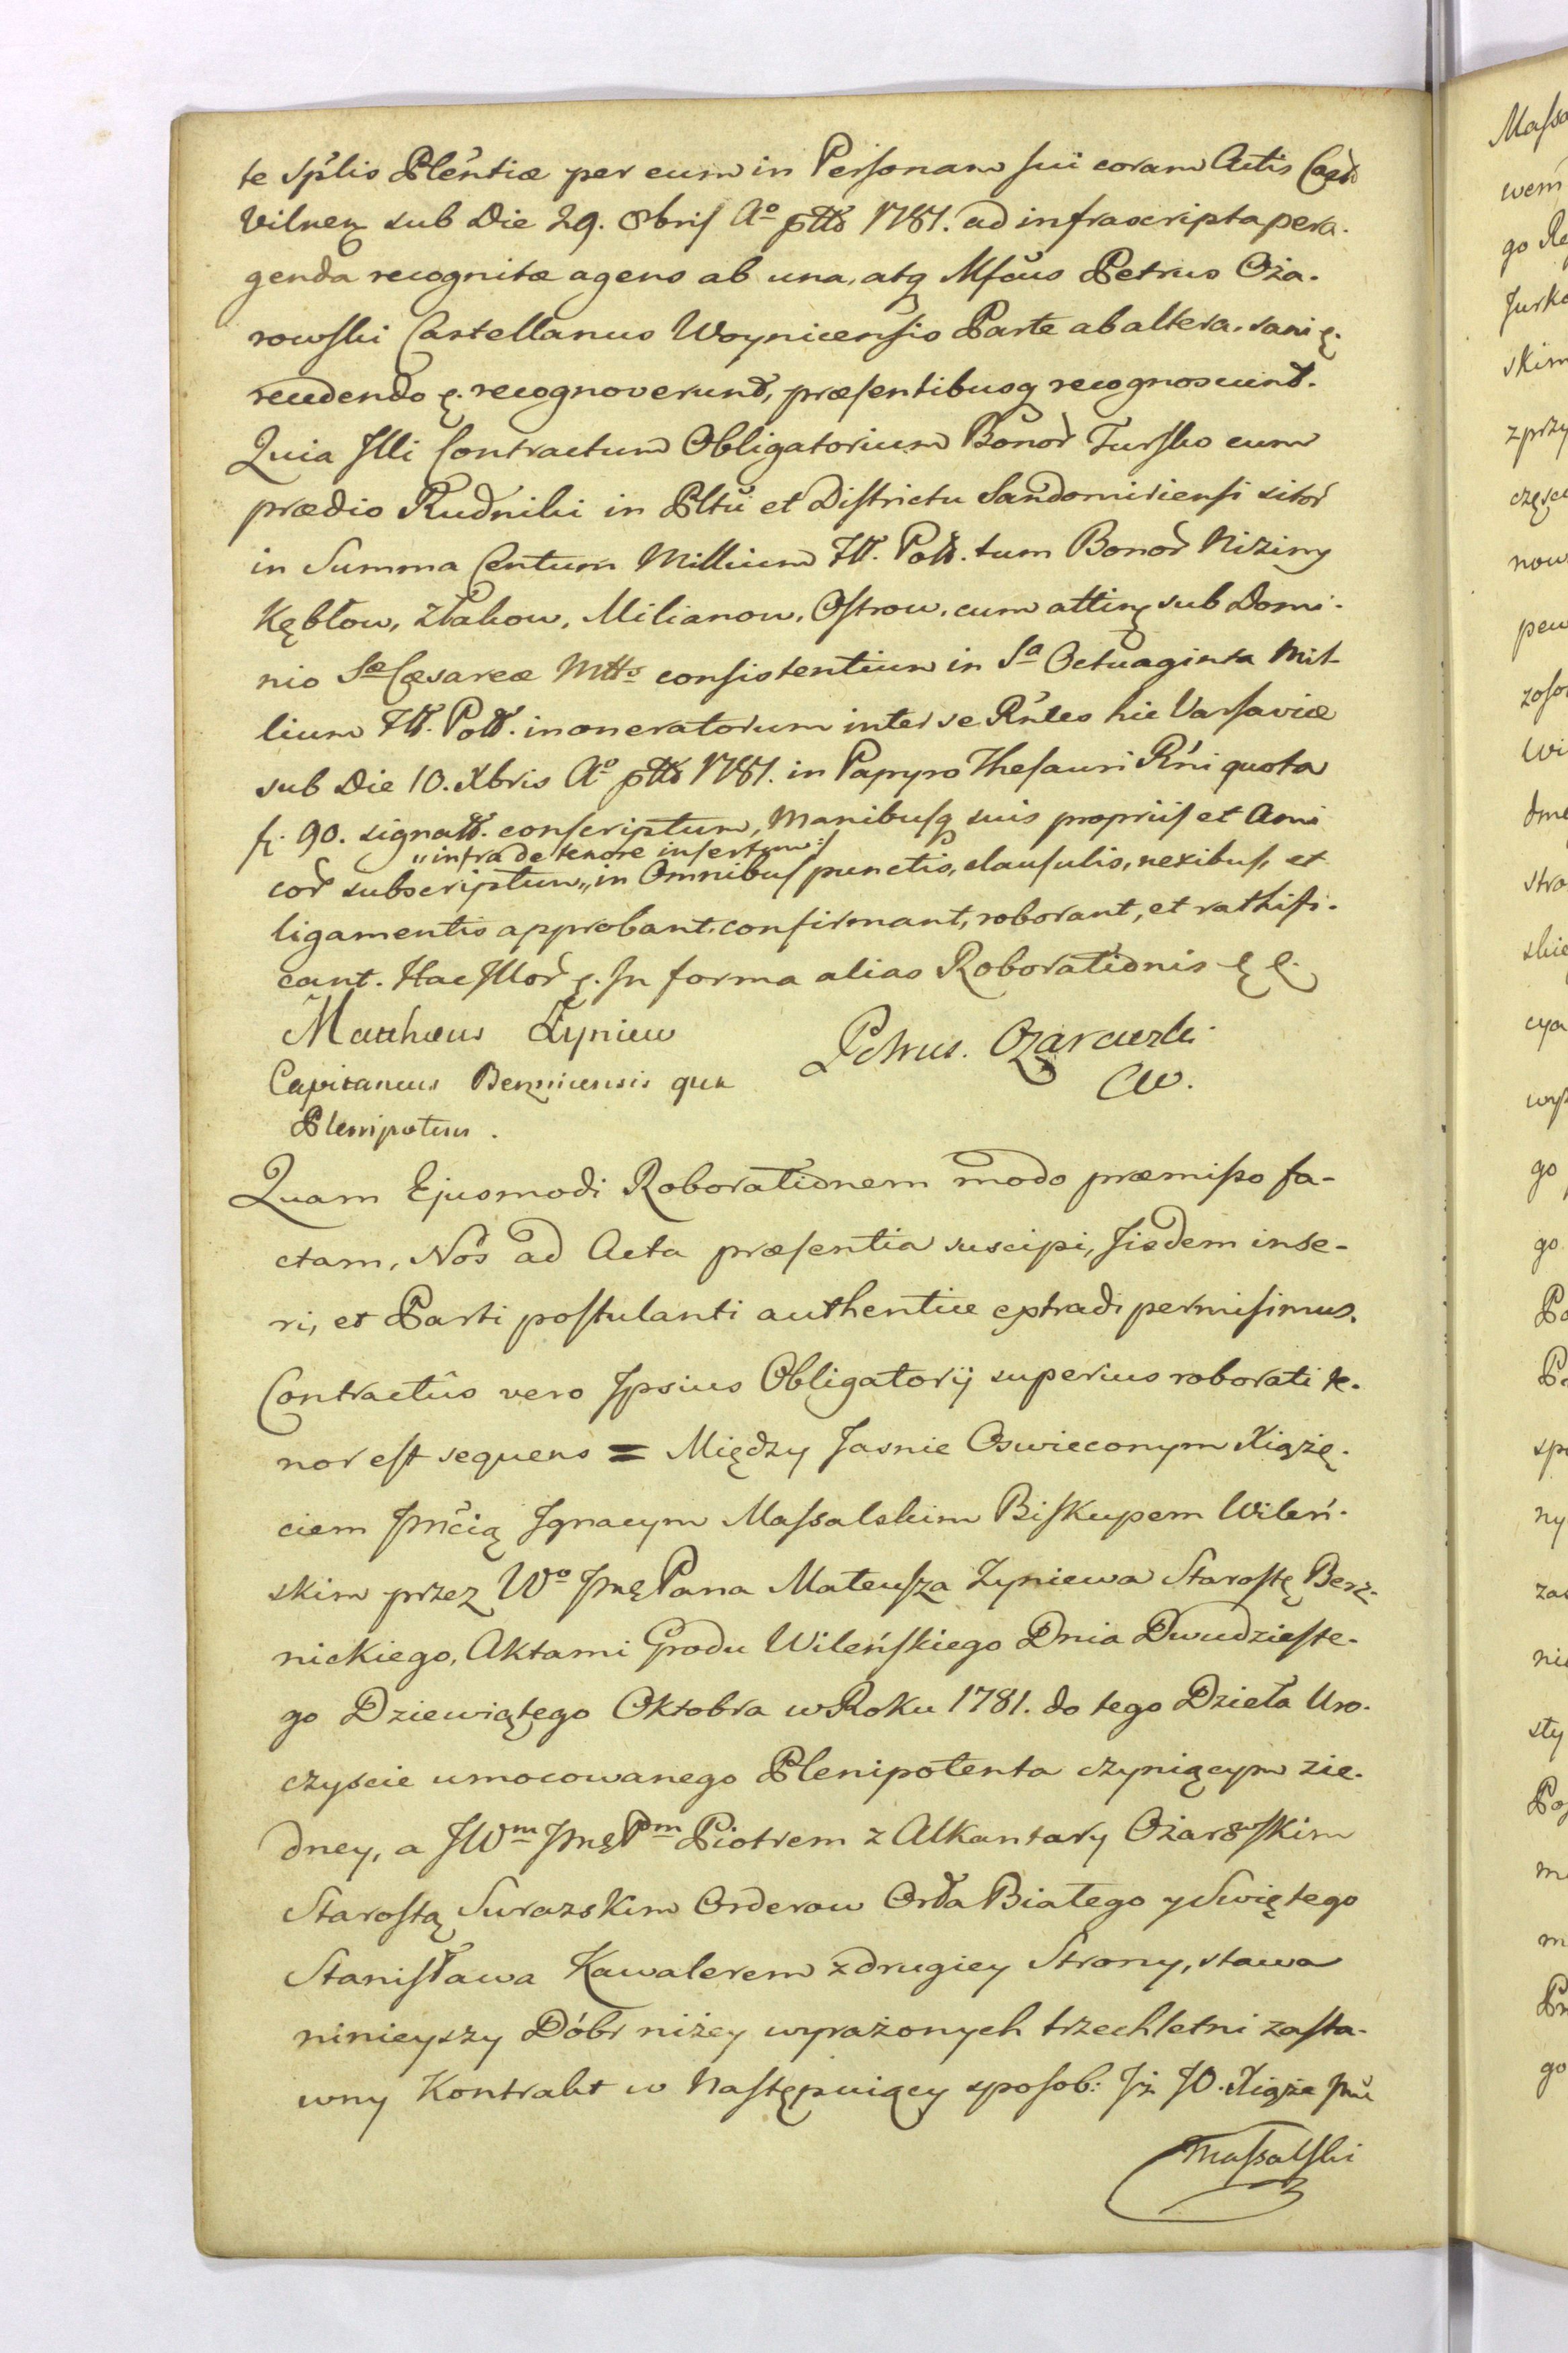 te Splis Plentiæ per eum in Personam sui coram Actis Castr
Vilnen sub Die 29. 8bris Ao ptto 1781. ad infrascripta pera-
genda recognitæ agens ab una, atq Mfcus Petrus Oża-
rowski Castellanus Woynicensis Parte ab altera. sani ę.
recedendo ę. recognoverunt, præsentibusq recognoscunt.
Quia Illi Contractum Obligatorium Bonor Tursko cum
prædio Rudniki in Pltu et Districtu Sandomiriensi sitor
in Summa Centum Millium Fll. Poll. tum Bonor Niziny
Kębłow, złakow, Milianow, Ostrow, cum attinę sub Domi-
nio Sæ Cæsareæ Mttis consistentium in Sa Octuaginta Mil-
lium Fll. Poll. inoneratorum inter se Rntes hic Varsaviæ
sub Die 10. Xbris Ao ptto 1781. in Papyro Thesauri Rni quota
fi. 90. signatt. conscriptum, Manibusq suis propriis et Ami
"infra de tenore insertum:/
cor subscriptum,, in Omnibus punctis, clausulis, nexibus, et
ligamentis approbant, confirmant, roborant, et rathifi-
cant. Hac Illor ę. In forma alias Roborationis ę ę.
Matthæus Żyniew Petrus. Ozarowski
Capitaneus Berznicensis qua CW.
Plenipotens.
Quam Ejusmodi Roborationem modo præmisso fa-
ctam, Nos ad Acta præsentia suscipi, Jisdem inse-
ri, et Parti postulanti authentice extradi permisimus.
Contractûs vero Ipsius Obligatorij superius roborati te-
nor est sequens = Między Jasnie Oswieconym Xiążę-
ciem Jmcią Ignacym Massalskim Biskupem Wileń-
skim przez Wo Jmę Pana Mateusza Zyniewa Starostę Berz-
nickiego, Aktami Grodu Wileńskiego Dnia Dwudzieste-
go Dziewiątego Oktobra w Roku 1781. do tego Dzieła Uro-
czyscie umocowanego Plenipotenta czyniącym zie-
dney, a JWm Jmę Pm Piotrem z Alkantary Ożarowskim
Starostą Surazskim Orderow Orła Białego y Swiętego
Stanisława Kawalerem z drugiey Strony, stawa
ninieyszy Dóbr niżey wyrażonych trzechletni zasta-
wny Kontrakt w Następuiący sposob: Jż JO. Xiąże Jmć
Massalski